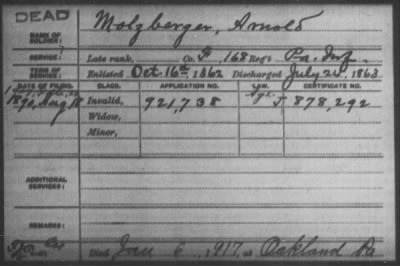 DEAD
NAME OF SOLDIER: Molzberger, Arnold
SERVICE: Late rank, Co. F, 168 Reg't Pa. Inf.
TERM OF SERVICE: Enlisted Oct 16th, 1862 Discharged July 24, 1863
DATE OF FILING. CLASS. APPLICATION NO. LAW. CERTIFICATE NO.
1890, Aug 18 Invalid, 921,738 J 878,292
Widow,
Minor,
ADDITIONAL SERVICES:
REMARKS:
Died Jan 6, 1917, at Oakland Pa